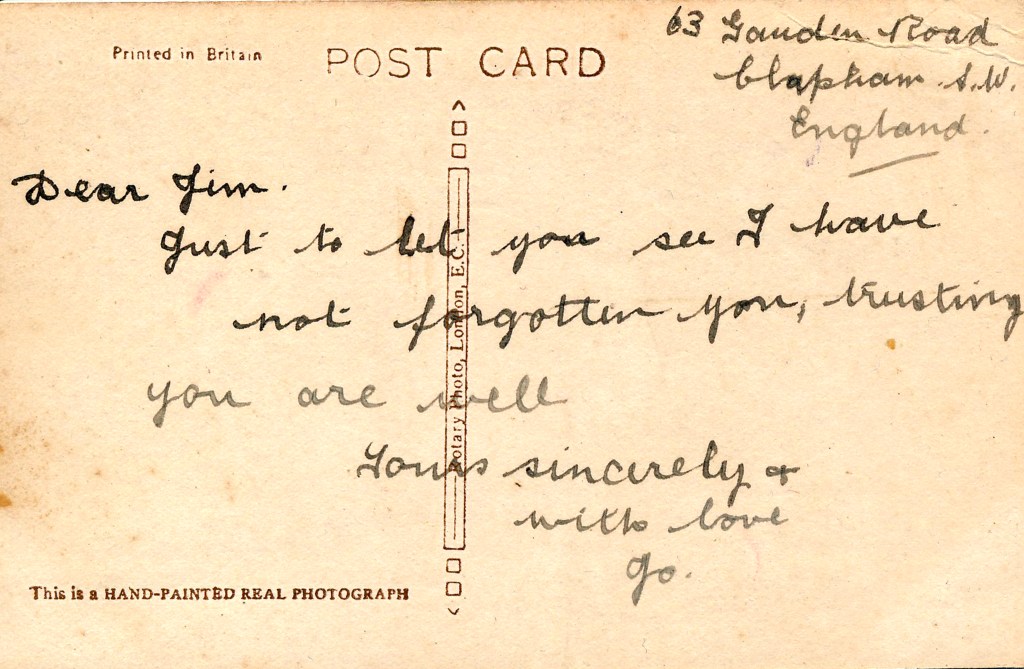 63 Gauden Road
Clapham. S.W.
England.
Printed in Britain
POST CARD
Dear Jim.
Just to let you see I have
not forgotten you, trusting
you are well
Yours sincerely &
with love
Jo.
Rotary Photo, London, E.C.
This is a HAND-PAINTED REAL PHOTOGRAPH